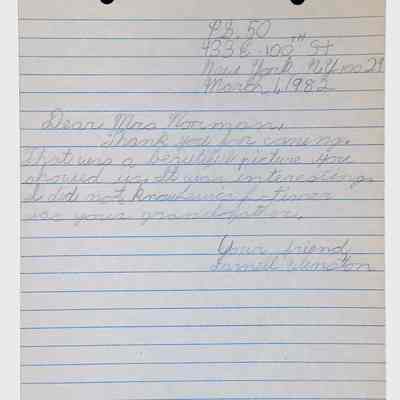 P.S. 50
433 E. 100th St
New York N.Y. 10029
March 1, 1982
Dear Mrs Norman,
Thank you for coming.
That was a beautiful picture you
showed us. It was interesting.
I did not know Lewis Latimer
was your grandfather.
Your friend,
Winston